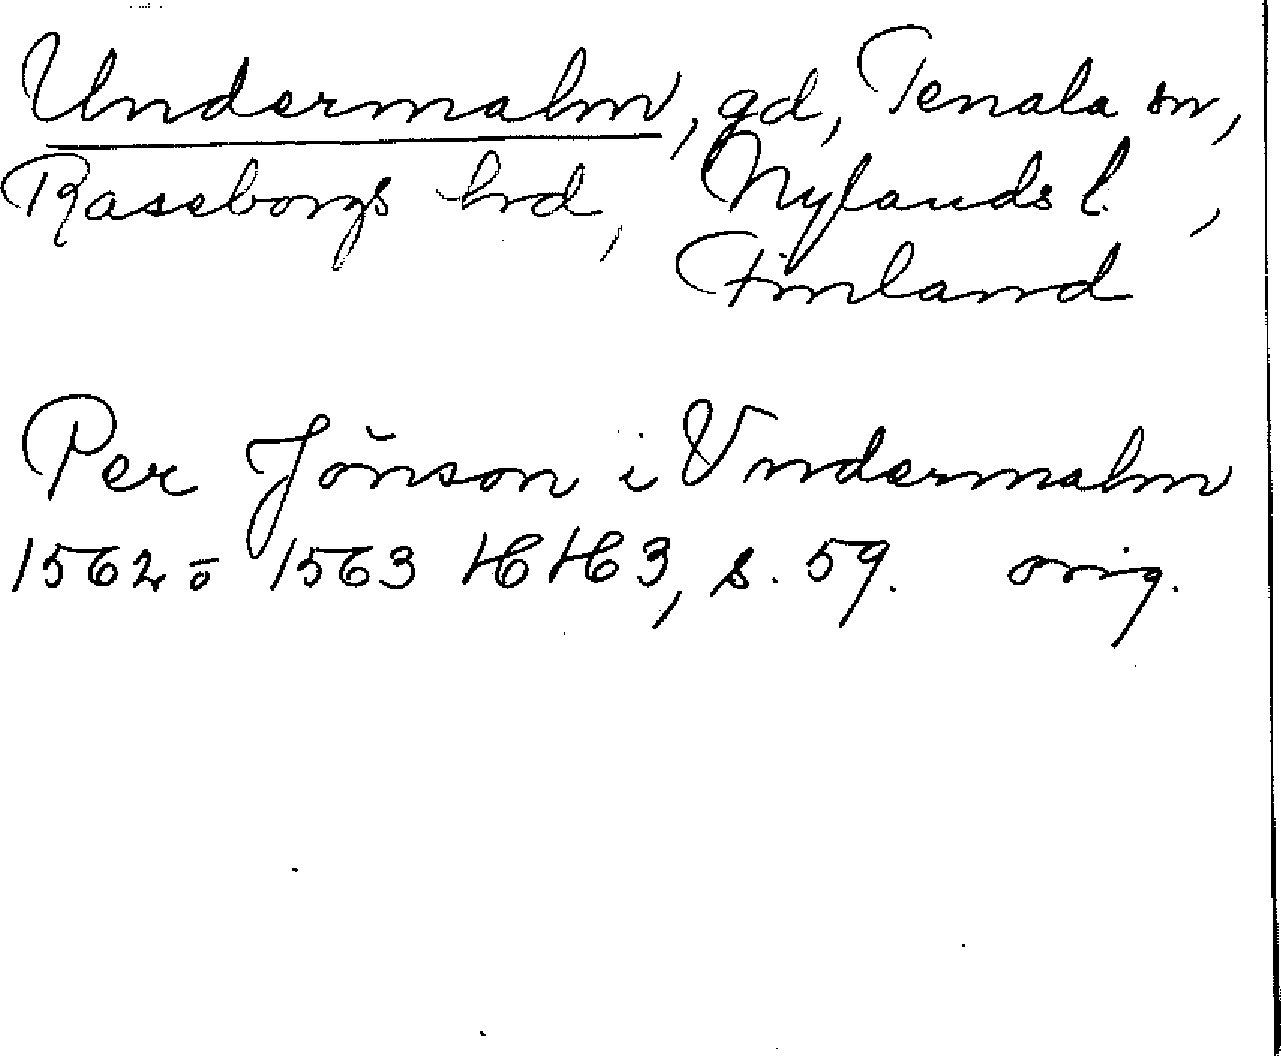 Undermalm, gd, Tenala sn,
Raseborgs hrd, Nylands l.,
Finland
Per Jönson i Vndermalm
1562 o 1563 HH3, s. 59. orig.